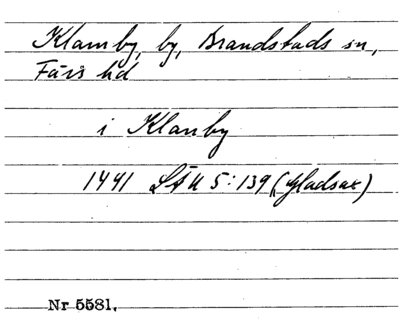 Klamby, by, Brandstads sn,
Färs hd
i Klamby
1441 LÄU 5:139 (Gladsax)
Nr 5581.